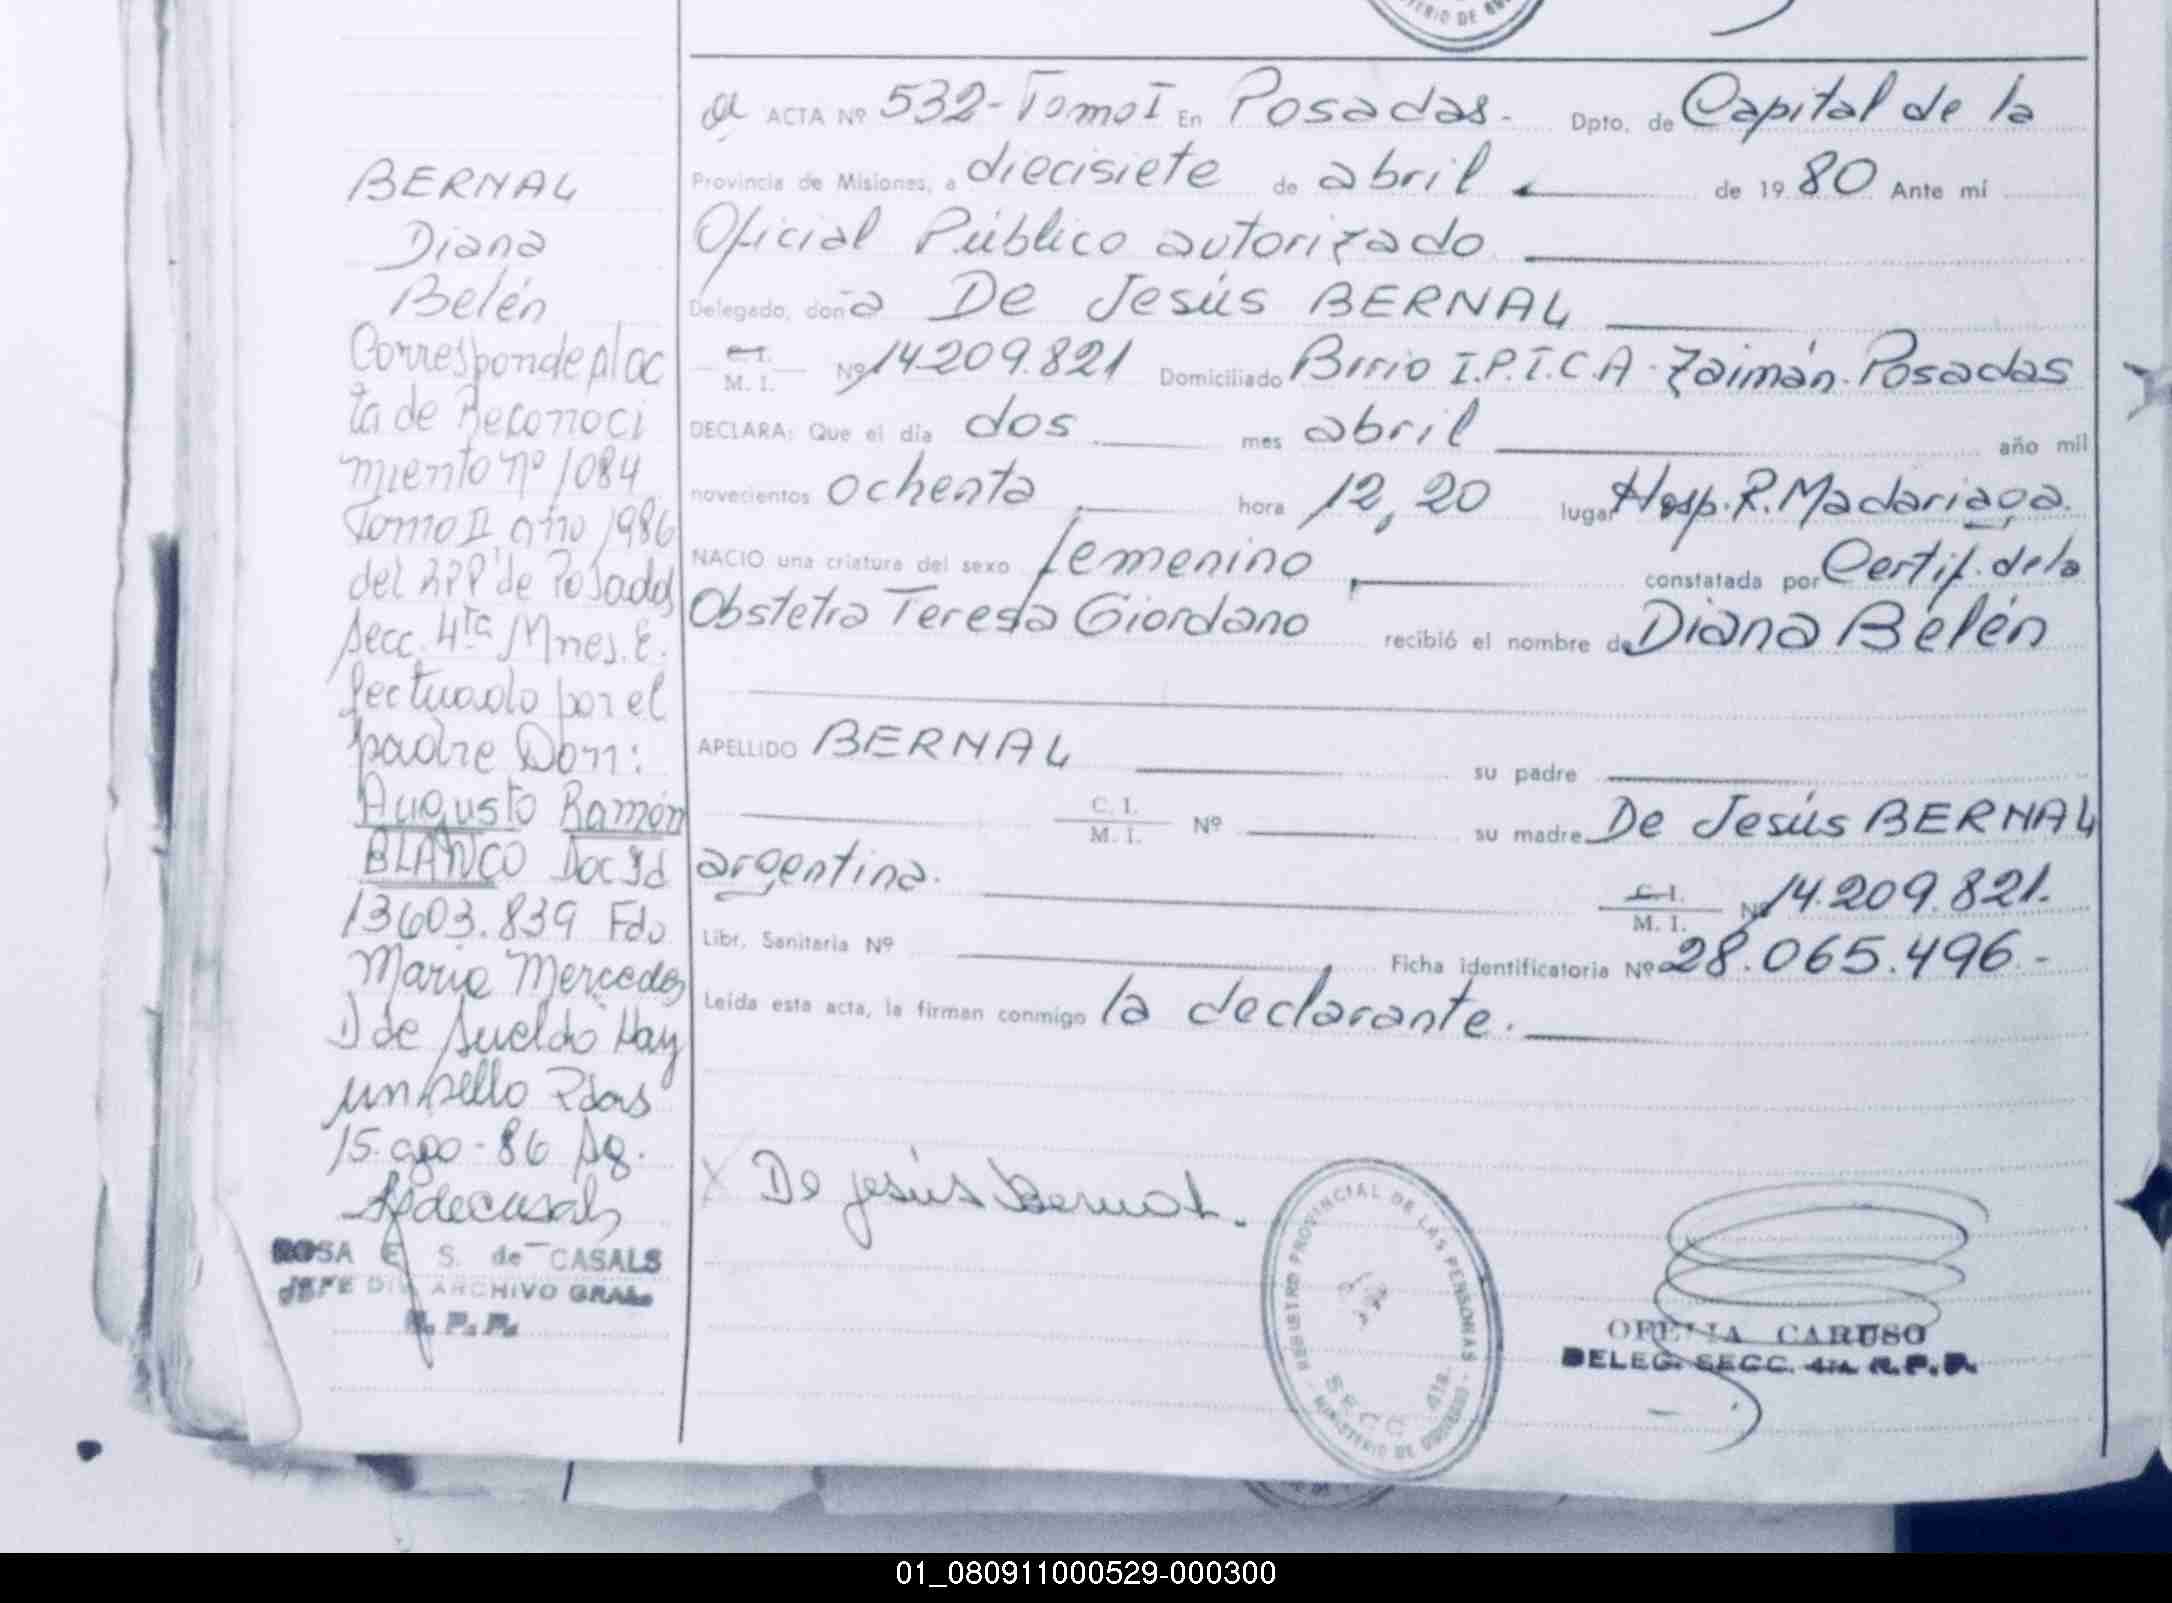 TERIO DE
a ACTA Nº 532- Tomo I En Posadas. Dpto. de Capital de la
Provincia de Misiones, a diecisiete de abril de 19 80 Ante mí
Oficial Público autorizado
Delegado, doña De Jesús BERNAL
C. I.
M. I. Nº 14.209.821 Domiciliado Brrio I.P.I.C.A. Zaimán. Posadas
DECLARA: Que el día dos mes abril año mil
novecientos ochenta hora 12,20 lugar Hosp. R. Madariaga.
NACIO una criatura del sexo femenino constatada por Certif. de la
Obstetra Teresa Giordano recibió el nombre de Diana Belén
APELLIDO BERNAL su padre
C. I.
M. I. Nº su madre De Jesús BERNAL
argentina. C. I.
M. I. Nº 14.209.821.
Libr. Sanitaria Nº Ficha identificatoria Nº 28.065.496.-
Leída esta acta, la firman conmigo la declarante.
X De jesús Bernal.
REGISTRO PROVINCIAL DE LAS PERSONAS
SECC. 4ta.
MINISTERIO DE GOBIERNO
OFELIA CARUSO
DELEG. SECC. 4ta R.P.P.
BERNAL
Diana
Belén
Corresponde al ac
ta de Reconoci
miento nº 1084
Tomo II año 1986
del RPP de Posadas
Secc. 4ta Mnes. E.
fectuado por el
padre Don:
Augusto Ramón
BLANCO Doc Id
13603.839 Fdo
Maria Mercedes
D de Sueldo Hay
un sello Pdas
15-ago-86 Sg.
ROSA E S. de CASALS
JEFE DIV ARCHIVO GRAL.
R. P. P.
01_080911000529-000300